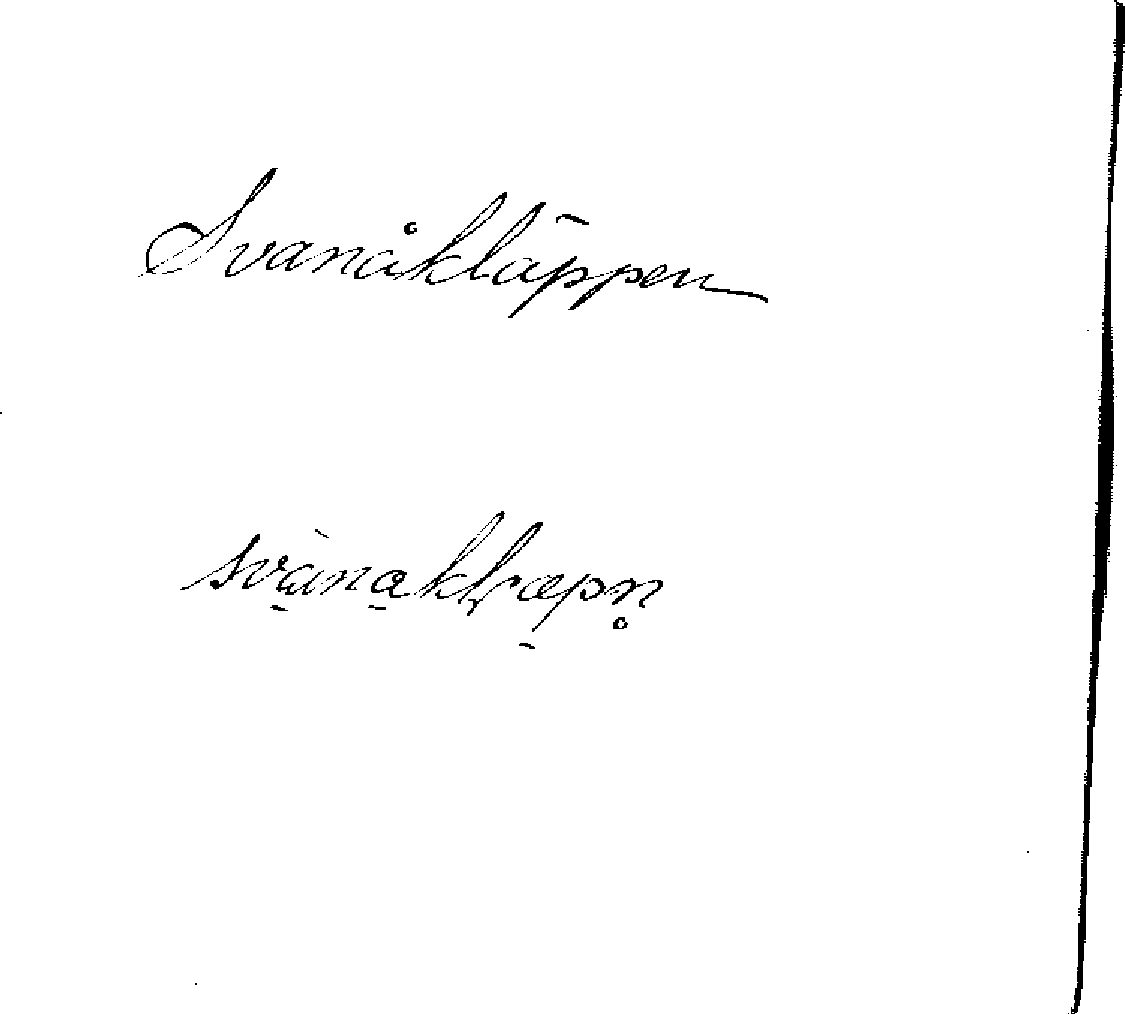 Svanåkläppen
svànaklæpn̥